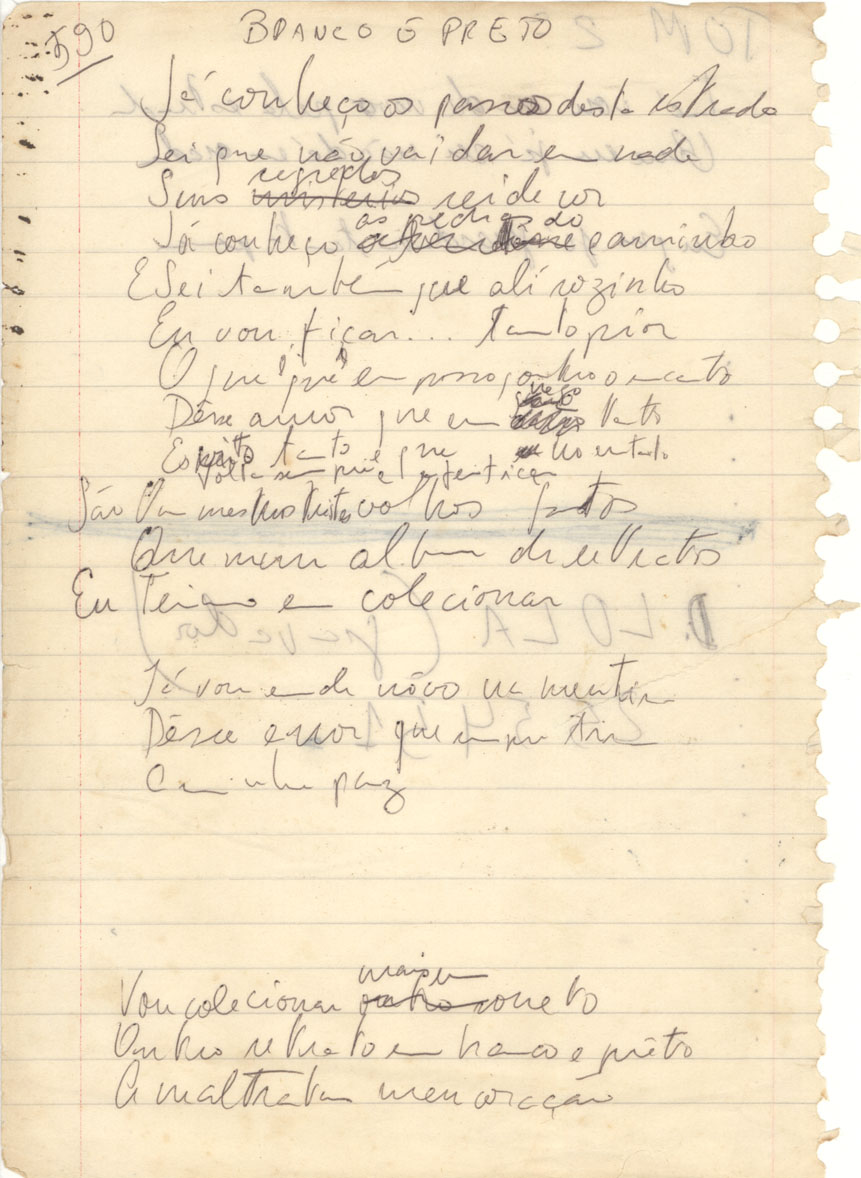 590
BRANCO E PRETO
Já conheço os passos desta estrada
Sei que não vai dar em nada
segredos
Seus mistérios sei de cor
as pedras do
Já conheço caminho
E Sei também que ali sozinho
Eu vou ficar... tanto pior
O que é que eu posso contra o encanto
nego
Dêsse amor que eu tanto
Evito tanto e que no entanto
Volta sempre a enfeitiçar
São Os mesmos tristes velhos fatos
Que num album de retratos
Eu Teimo em colecionar
Já vou eu de nôvo na mentira
Dêsse amor que tira
A minha paz
mais um
Vou colecionar outro soneto
Outro retrato em branco e prêto
A maltratar meu coração